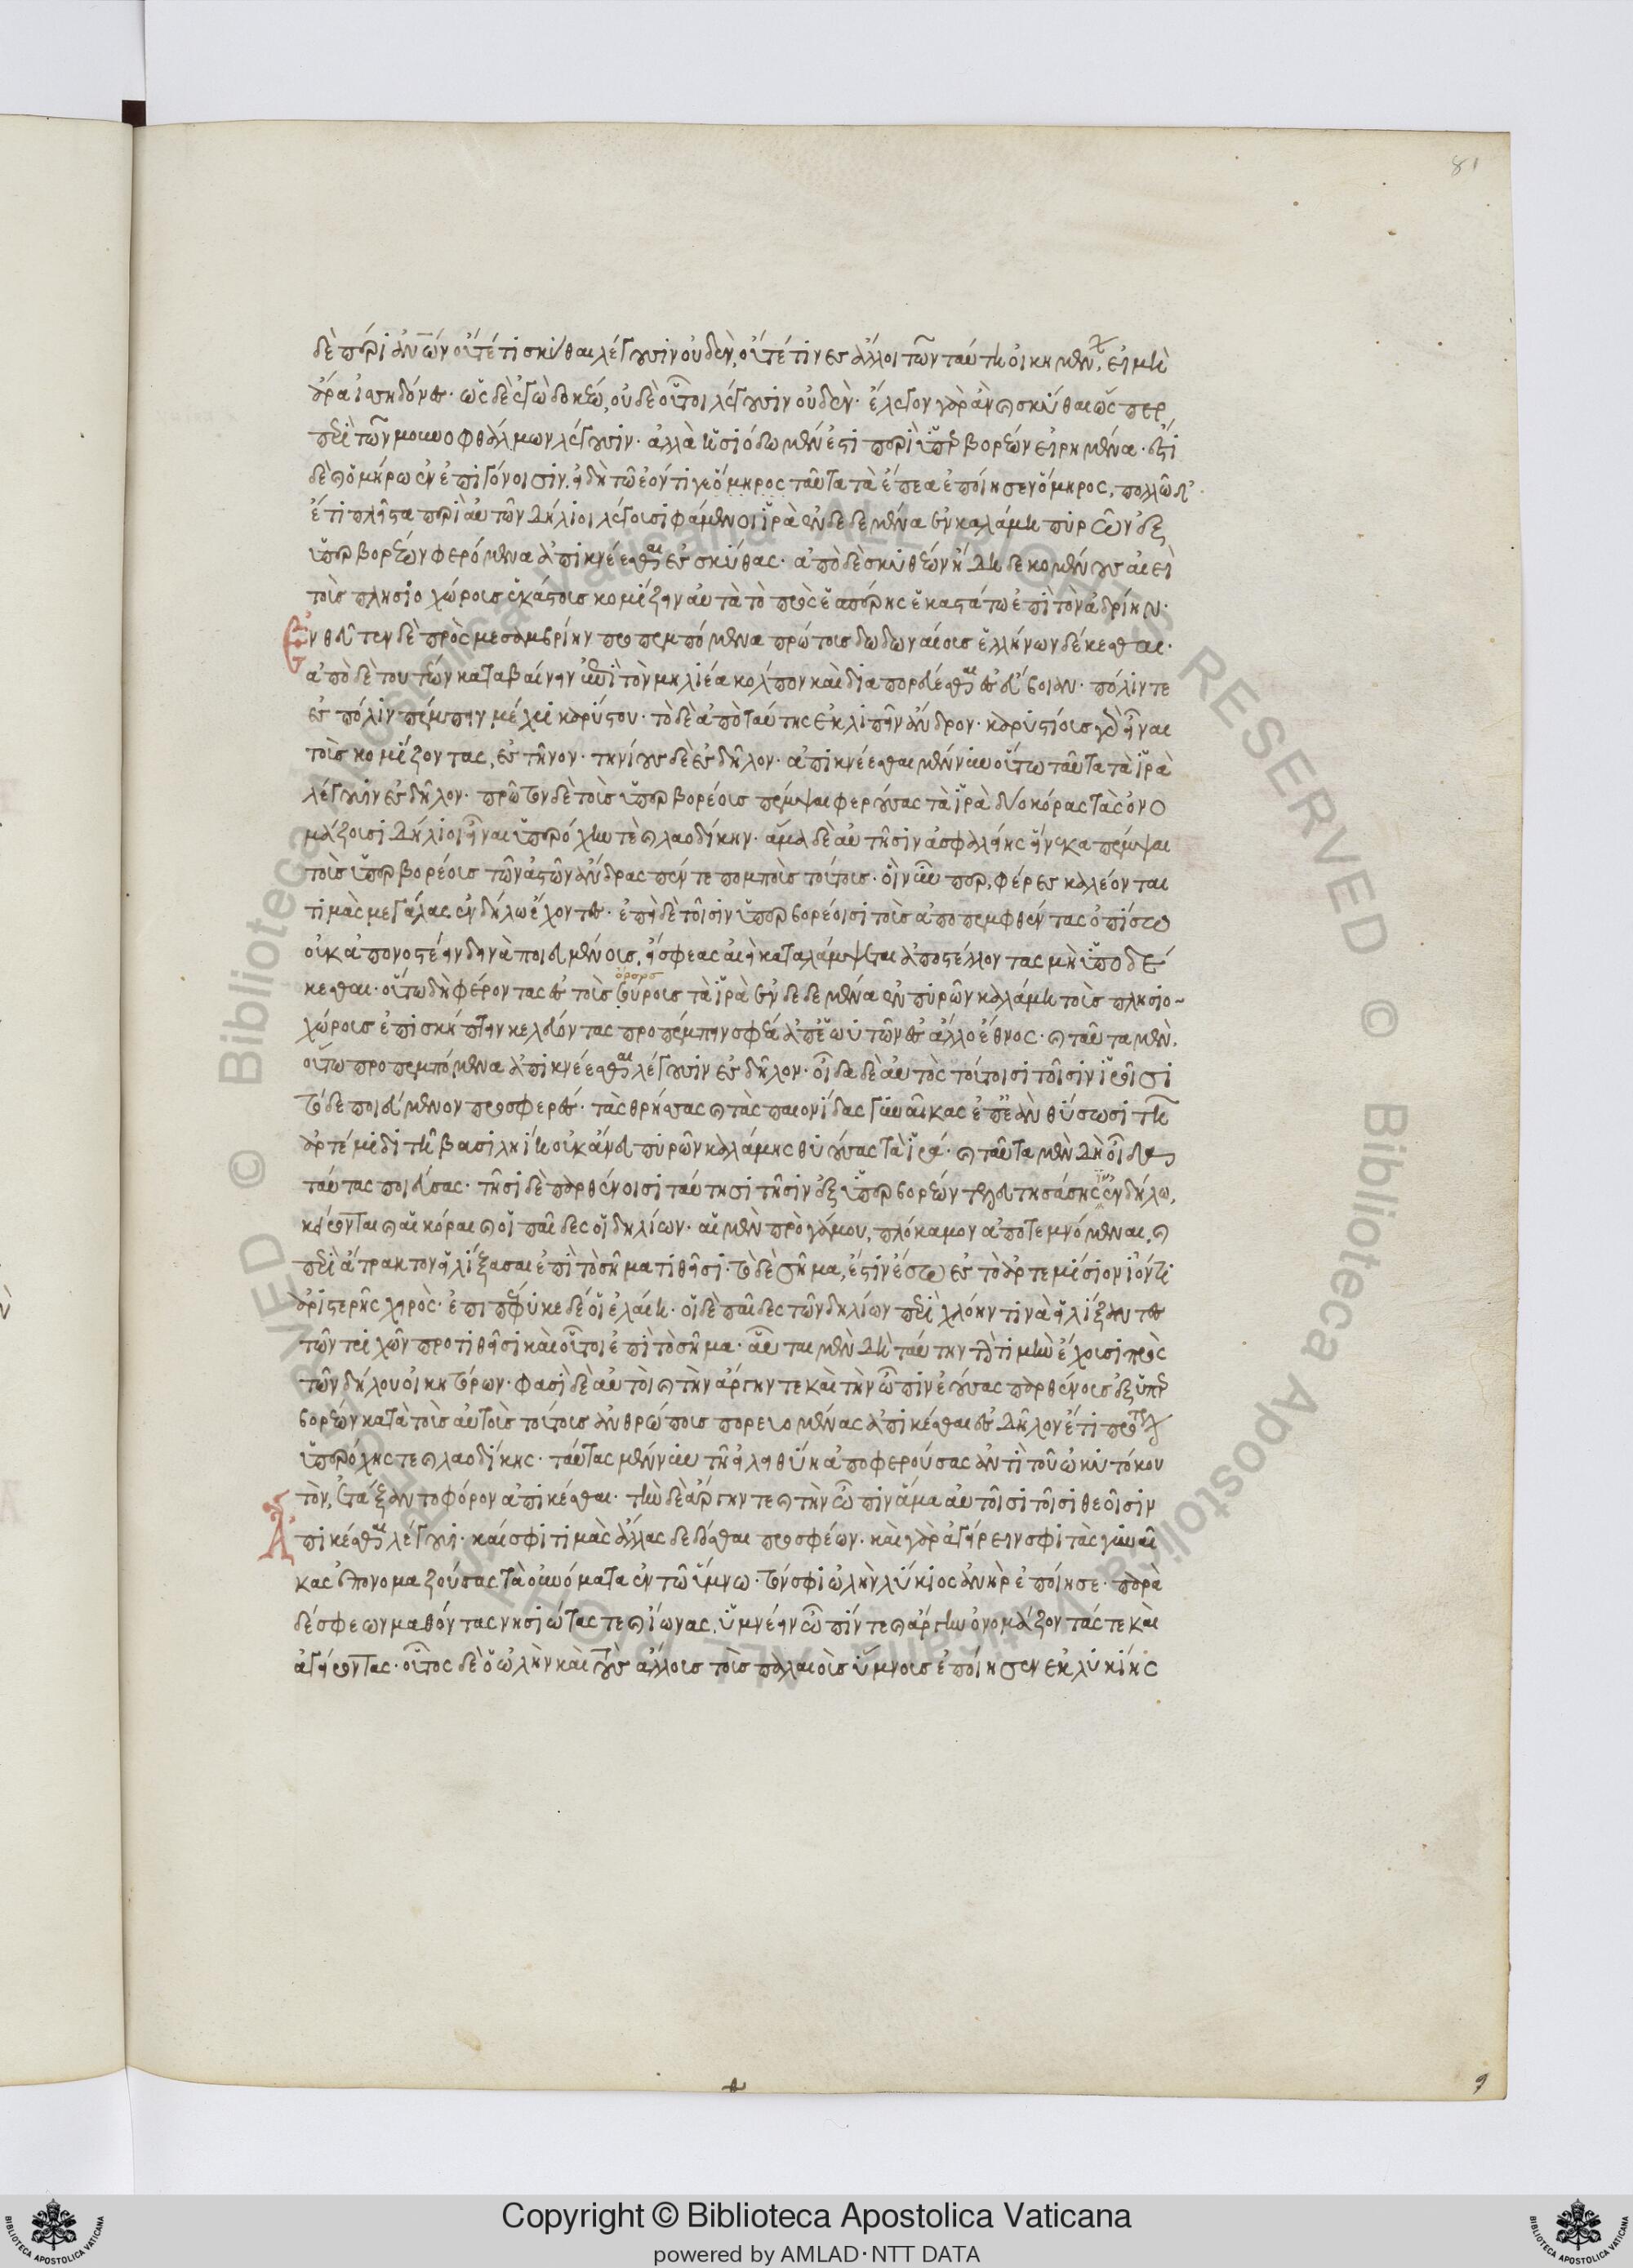 81
δὲ πέρι ἀνῶν οὔτέ τι σκύθαι λέγουσιν οὐδὲν, οὔτέ τινες ἄλλοι τῶν ταύτη οἰκημένων, εἰ μὴ
ἄρα ἰσσηδόνες. ὡς δὲ ἐγὼ δοκέω, οὐδὲ οὗτοι λέγουσιν οὐδέν. ἔλεγον γὰρ ἂν καὶ σκύθαι ὥσπερ
περὶ τῶν μουνοφθάλμων λέγουσιν. ἀλλὰ ἡσιόδω μέν ἐστι περὶ ὑπερβορέων εἰρημένα. ἔστι
δὲ καὶ ὁμήρω ἐν ἐπιγόνοισιν. εἰ δὴ τῶ ἐόντι γε ὅμηρος ταῦτα τὰ ἔπεα ἐποίησεν ὅμηρος. πολλῶ δ'
ἔτι πλεῖστα περὶ αὐτῶν δήλιοι λέγουσι φάμενοι ἱρὰ ἐνδεδεμένα ἐν καλάμη πυρῶν ἐξ
ὑπερβορέων φερόμενα ἀπικνέεσθαι ἐς σκύθας. ἀπὸ δὲ σκυθέων ἤδη δεκομένους αἰεὶ
τοὺς πλησιοχώρους ἑκάστους κομίζειν αὐτὰ τὸ πρὸς ἑσπέρης ἑκαστάτω ἐπὶ τὸν ἀδρίην.
Ἐνθεῦτεν δὲ πρὸς μεσαμβρίην προπεμπόμενα πρώτους δωδωναίους ἑλλήνων δέκεσθαι.
ἀπὸ δὲ τουτέων καταβαίνειν ἐπὶ τὸν μηλιέα κόλπον καὶ διαπορεύεσθαι ἐς εὔβοιαν. πόλιν τε
ἐς πόλιν πέμπειν μέχρι καρύστου. τὸ δὲ ἀπὸ ταύτης ἐκλιπεῖν ἄνδρον. καρυστίους γὰρ εἶναι
τοὺς κομίζοντας, ἐς τῆνον. τηνίους δὲ ἐς δῆλον. ἀπικνέεσθαι μέν νυν οὕτω ταῦτα τὰ ἱρὰ
λέγουσιν ἐς δῆλον. πρῶτον δὲ τοὺς ὑπερβορέους πέμψαι φερούσας τὰ ἱρὰ δύο κόρας τὰς ὀνο
μάζουσι δήλιοι εἶναι ὑπερόχην τὲ καὶ λαοδίκην. ἅμα δὲ αὐτῆσιν ἀσφαλείης εἵνεκα πέμψαι
τοὺς ὑπερβορέους τῶν ἀστῶν ἄνδρας πέντε πομποὺς τούτους. οἳ νῦν περφέρες καλέονται
τιμὰς μεγάλας ἐν δήλω ἔχοντες. ἐπεὶ δὲ τοῖσιν ὑπερβορέοισι τοὺς ἀποπεμφθέντας ὀπίσω
οὐκ ἀπονοστέειν δεινὰ ποιευμένους, εἰ σφεας αἰεὶ καταλάμψεται ἀποστέλλοντας μὴ ὑποδέ
κεσθαι. οὕτω δὴ φέροντας ἐς τοὺς οὔρους τὰ ἱρὰ ἐνδεδεμένα ἐν πυρῶν καλάμη τοὺς πλησιο
χώρους ἐπισκήπτειν κελεύοντας προπέμπειν σφέα ἀπ' ἑωυτῶν ἐς ἄλλο ἔθνος. καὶ ταῦτα μὲν
οὕτω προπεμπόμενα ἀπικνέεσθαι λέγουσιν ἐς δῆλον. οἶδα δὲ αὐτὸς τούτοισι τοῖσιν ἱροῖσι
τόδε ποιεύμενον προσφερές. τὰς θρηίσσας καὶ τὰς παιονίδας γυναῖκας ἐπεὰν θύσωσι τῆ
ἀρτέμιδι τῆ βασιληίη οὐκ ἄνευ πυρῶν καλάμης θυούσας τὰ ἱρά. καὶ ταῦτα μὲν δὴ οἶδα
ταύτας ποιεύσας. τῆσι δὲ παρθένοισι ταύτησι τῆσιν ἐξ ὑπερβορέων τελευτησάσησιν ἐν δήλω,
κείρονται καὶ αἱ κόραι καὶ οἱ παῖδες οἱ δηλίων. αἱ μὲν πρὸ γάμου, πλόκαμον ἀποτεμνόμεναι, καὶ
περὶ ἄτρακτον εἱλίξασαι ἐπὶ τὸ σῆμα τιθεῖσι. τὸ δὲ σῆμα, ἔστιν ἔσω ἐς τὸ ἀρτεμίσιον ἰόντι
ἀριστερῆς χειρὸς. ἐπιπέφυκε δέ οἱ ἐλαίη. οἱ δὲ παῖδες τῶν δηλίων περὶ χλόην τινὰ εἱλίξαντες
τῶν τριχῶν προτιθεῖσι καὶ οὗτοι ἐπὶ τὸ σῆμα. αὗται μὲν δὴ ταύτην τὴν τιμὴν ἔχουσι πρὸς
τῶν δήλου οἰκητόρων. φασὶ δὲ αὐτοὶ καὶ τὴν ἄργην τε καὶ τὴν ὦπιν ἐούσας παρθένους ἐξ ὑπερ
βορέων κατὰ τοὺς αὐτοὺς τούτους ἀνθρώπους πορευομένας ἀπικέσθαι ἐς δῆλον ἔτι πρότερ
ὑπερόχης τε καὶ λαοδίκης. ταύτας μέν νυν τῆ εἰλειθυίη ἀποφερούσας ἀντὶ τοῦ ὠκυτόκου
τὸν, ἐτάξαντο φόρον ἀπικέσθαι. τὴν δὲ ἄργην τε καὶ τὴν ὦπιν ἅμα αὐτοῖσι τοῖσι θεοῖσιν
Ἀπικέσθαι λέγουσι. καί σφι τιμὰς ἄλλας δεδόσθαι προσφέων. καὶ γὰρ ἀγείρειν σφι τὰς γυναῖ
κας ἐπονομαζούσας τὰ οὐνόματα ἐν τῶ ὕμνω. τόν σφι ὠλὴν λύκιος ἀνὴρ ἐποίησε. παρὰ
δέ σφεων μαθόντας νησιώτας τε καὶ ἴωνας, ὑμνέειν ὦπίν τε καὶ ἄργην ὀνομάζοντάς τε καὶ
ἀγείροντας. οὗτος δὲ ὁ ὠλὴν καὶ τοὺς ἄλλους τοὺς παλαιοὺς ὕμνους ἐποίησεν ἐκ λυκίης
Copyright © Biblioteca Apostolica Vaticana
powered by AMLAD·NTT DATA